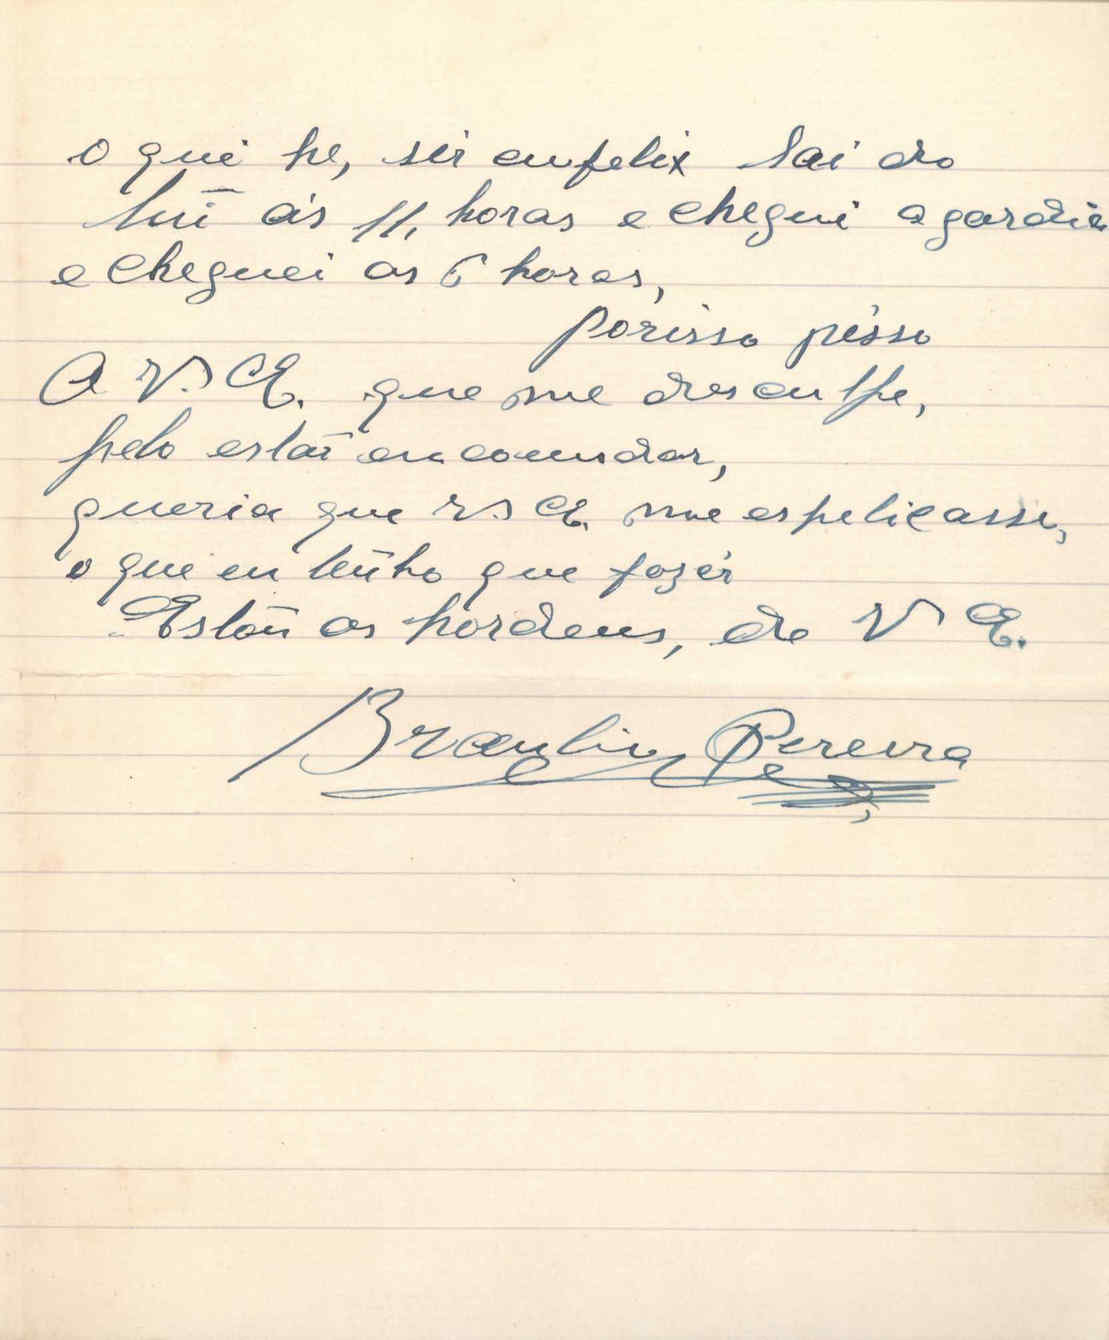 o que he, ser enfelix Sai do
ás 11, horas e chegui a gardia
e cheguei as 6 horas,
porisso pésso
A V. E. que me desculpe,
pelo estar encomudar,
queria que V E. me espelicasse,
o que eu tenho que fazér
Estou as hordens, de V E.
Braulio Pereira